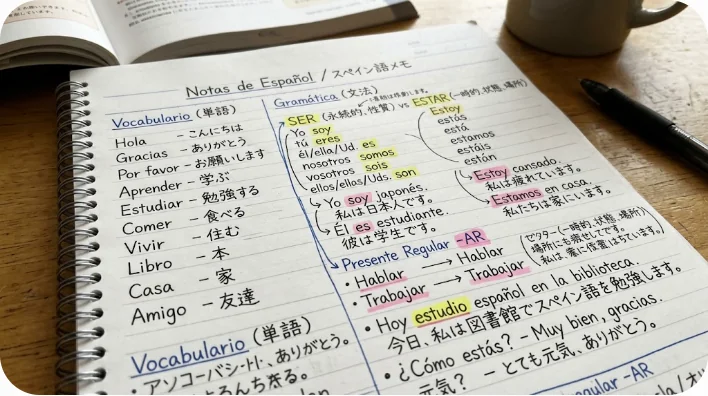 Notas de Español / スペイン語メモ
Vocabulario (単語)
Hola – こんにちは
Gracias – ありがとう
Por favor – お願いします
Aprender – 学ぶ
Estudiar – 勉強する
Comer – 食べる
Vivir – 住む
Libro – 本
Casa – 家
Amigo – 友達
Vocabulario (単語)
ありがとう。
Gramática (文法)
SER (永続的, 性質) vs ESTAR (一時的, 状態, 場所)
Yo soy
tú eres
él/ella/Ud. es
nosotros somos
vosotros sois
ellos/ellas/Uds. son
Estoy
estás
está
estamos
estáis
están
Yo soy japonés.
私は日本人です。
Él es estudiante.
彼は学生です。
Estoy cansado.
私は疲れています。
Estamos en casa.
私たちは家にいます。
Presente Regular -AR
• Hablar → Hablar
• Trabajar → Trabajar
(一時的, 状態, 場所)
• Hoy estudio español en la biblioteca.
今日、私は図書館でスペイン語を勉強します。
• ¿Cómo estás? – Muy bien, gracias.
元気? – とても元気、ありがとう。
-AR